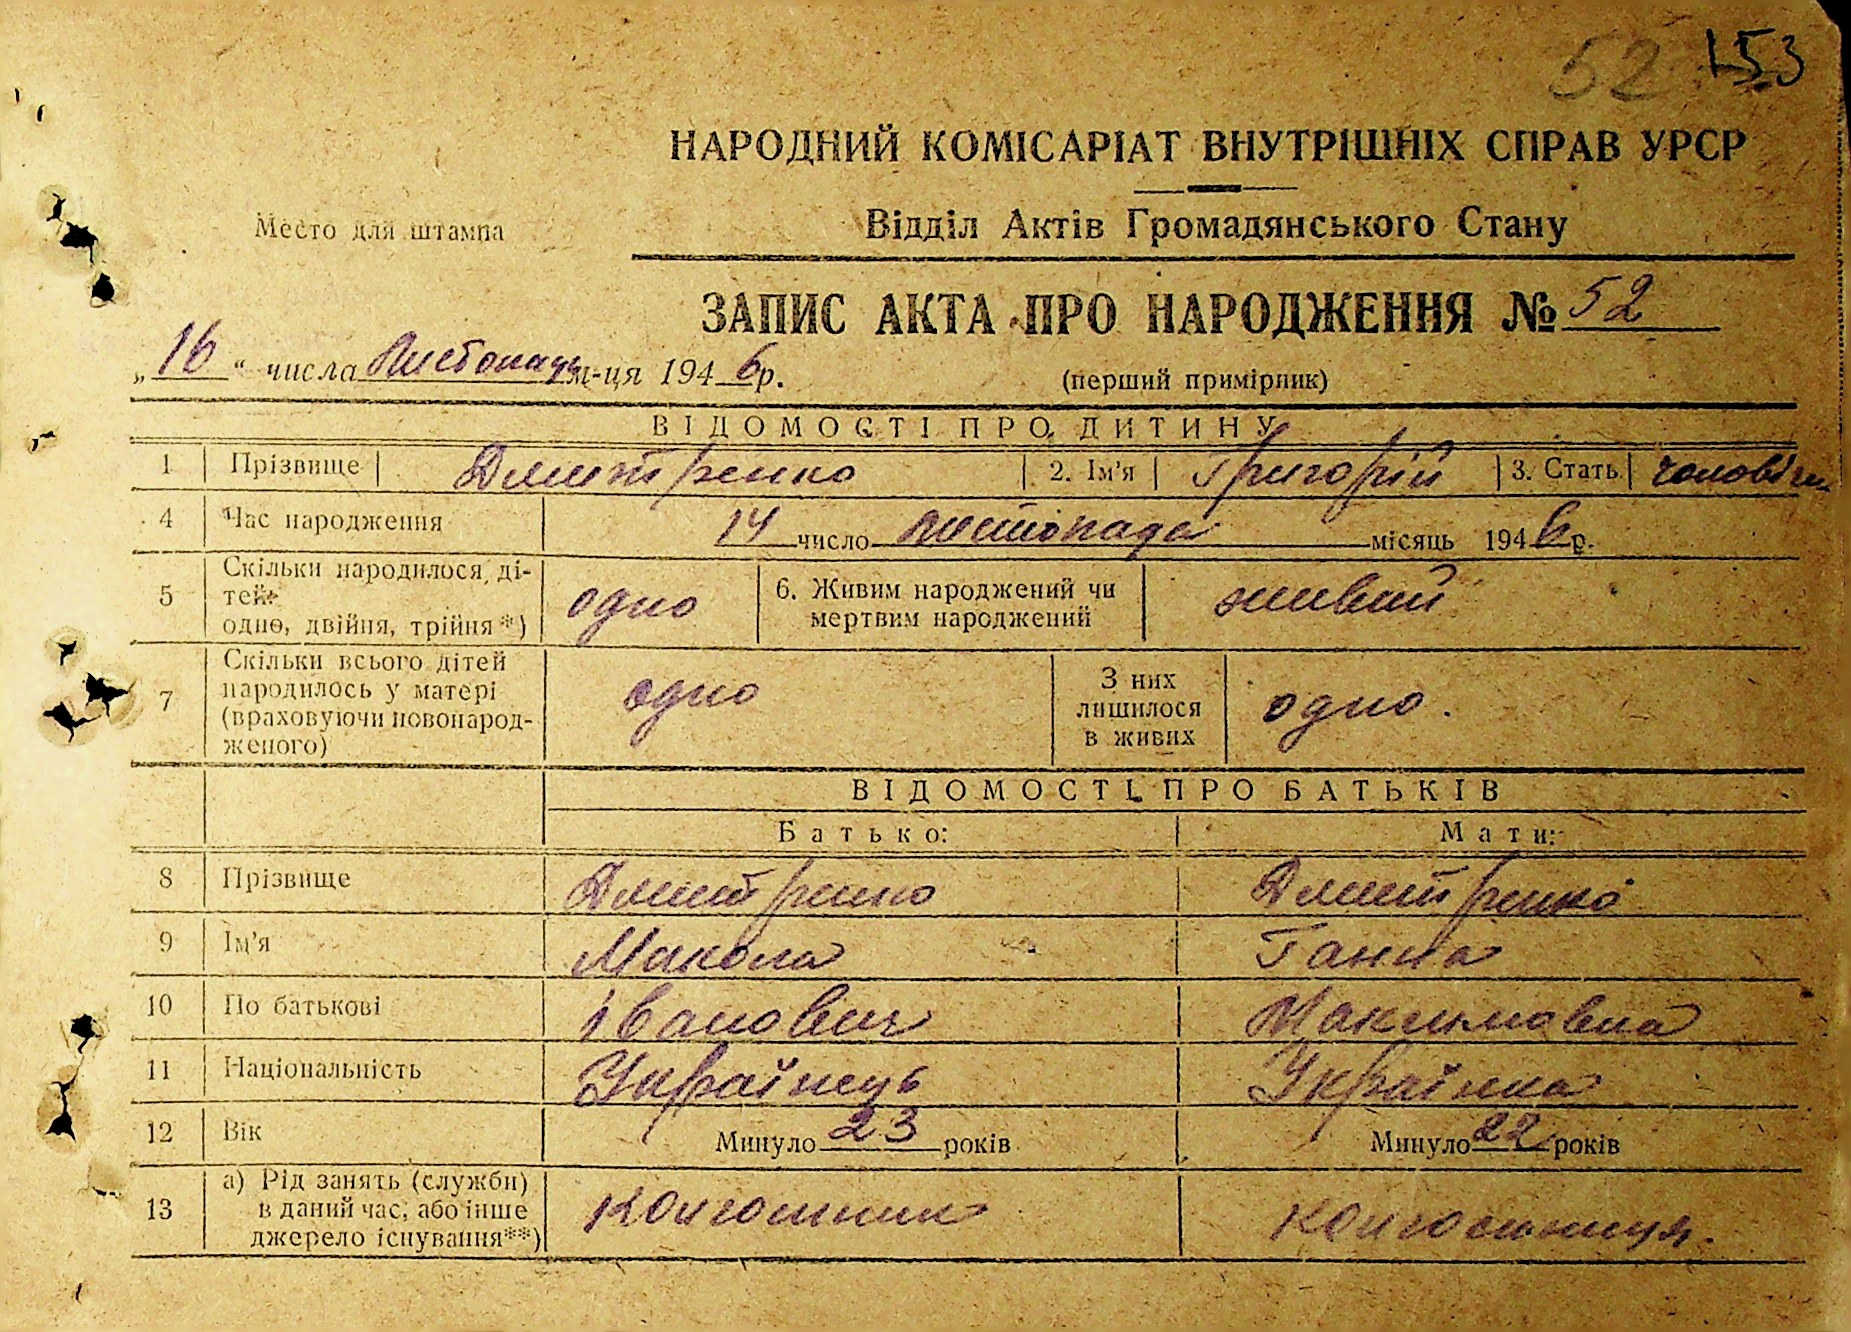 52 153
НАРОДНИЙ КОМІСАРІАТ ВНУТРІШНІХ СПРАВ УРСР
Место для штампа
Відділ Актів Громадянського Стану
ЗАПИС АКТА ПРО НАРОДЖЕННЯ № 52
„16“ числа Листопада м-ця 1946р. (перший примірник)
ВІДОМОСТІ ПРО ДИТИНУ
1 Прізвище Дмитренко 2. Ім'я Григорій 3. Стать
4 Час народження 14 число листопада місяць 1946р.
5 Скільки народилося ді-
тей:
одно, двійня, трійня*) одно 6. Живим народжений чи
мертвим народжений живий
7 Скільки всього дітей
народилось у матері
(враховуючи новонарод-
женого) одно З них
лишилося
в живих одно.
ВІДОМОСТІ ПРО БАТЬКІВ
Батько: Мати:
8 Прізвище Дмитренко Дмитренко
9 Ім'я Макола Ганна
10 По батькові Іванович Максимовна
11 Національність Українець Українка
12 Вік Минуло 23 років Минуло 22 років
13 а) Рід занять (служби)
в даний час, або інше
джерело існування**) колгошник колгосниця.